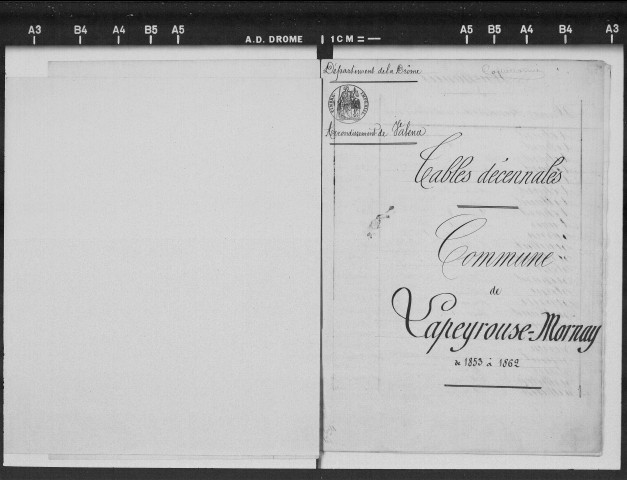 A3 B4 A4 B5 A5 A.D. DROME 1CM A5 B5 A4 B4 A3
Département de la Drôme
Arrondissement de Valence
Tables décennales
Commune
de
Lapeyrouse-Mornay
de 1853 à 1862